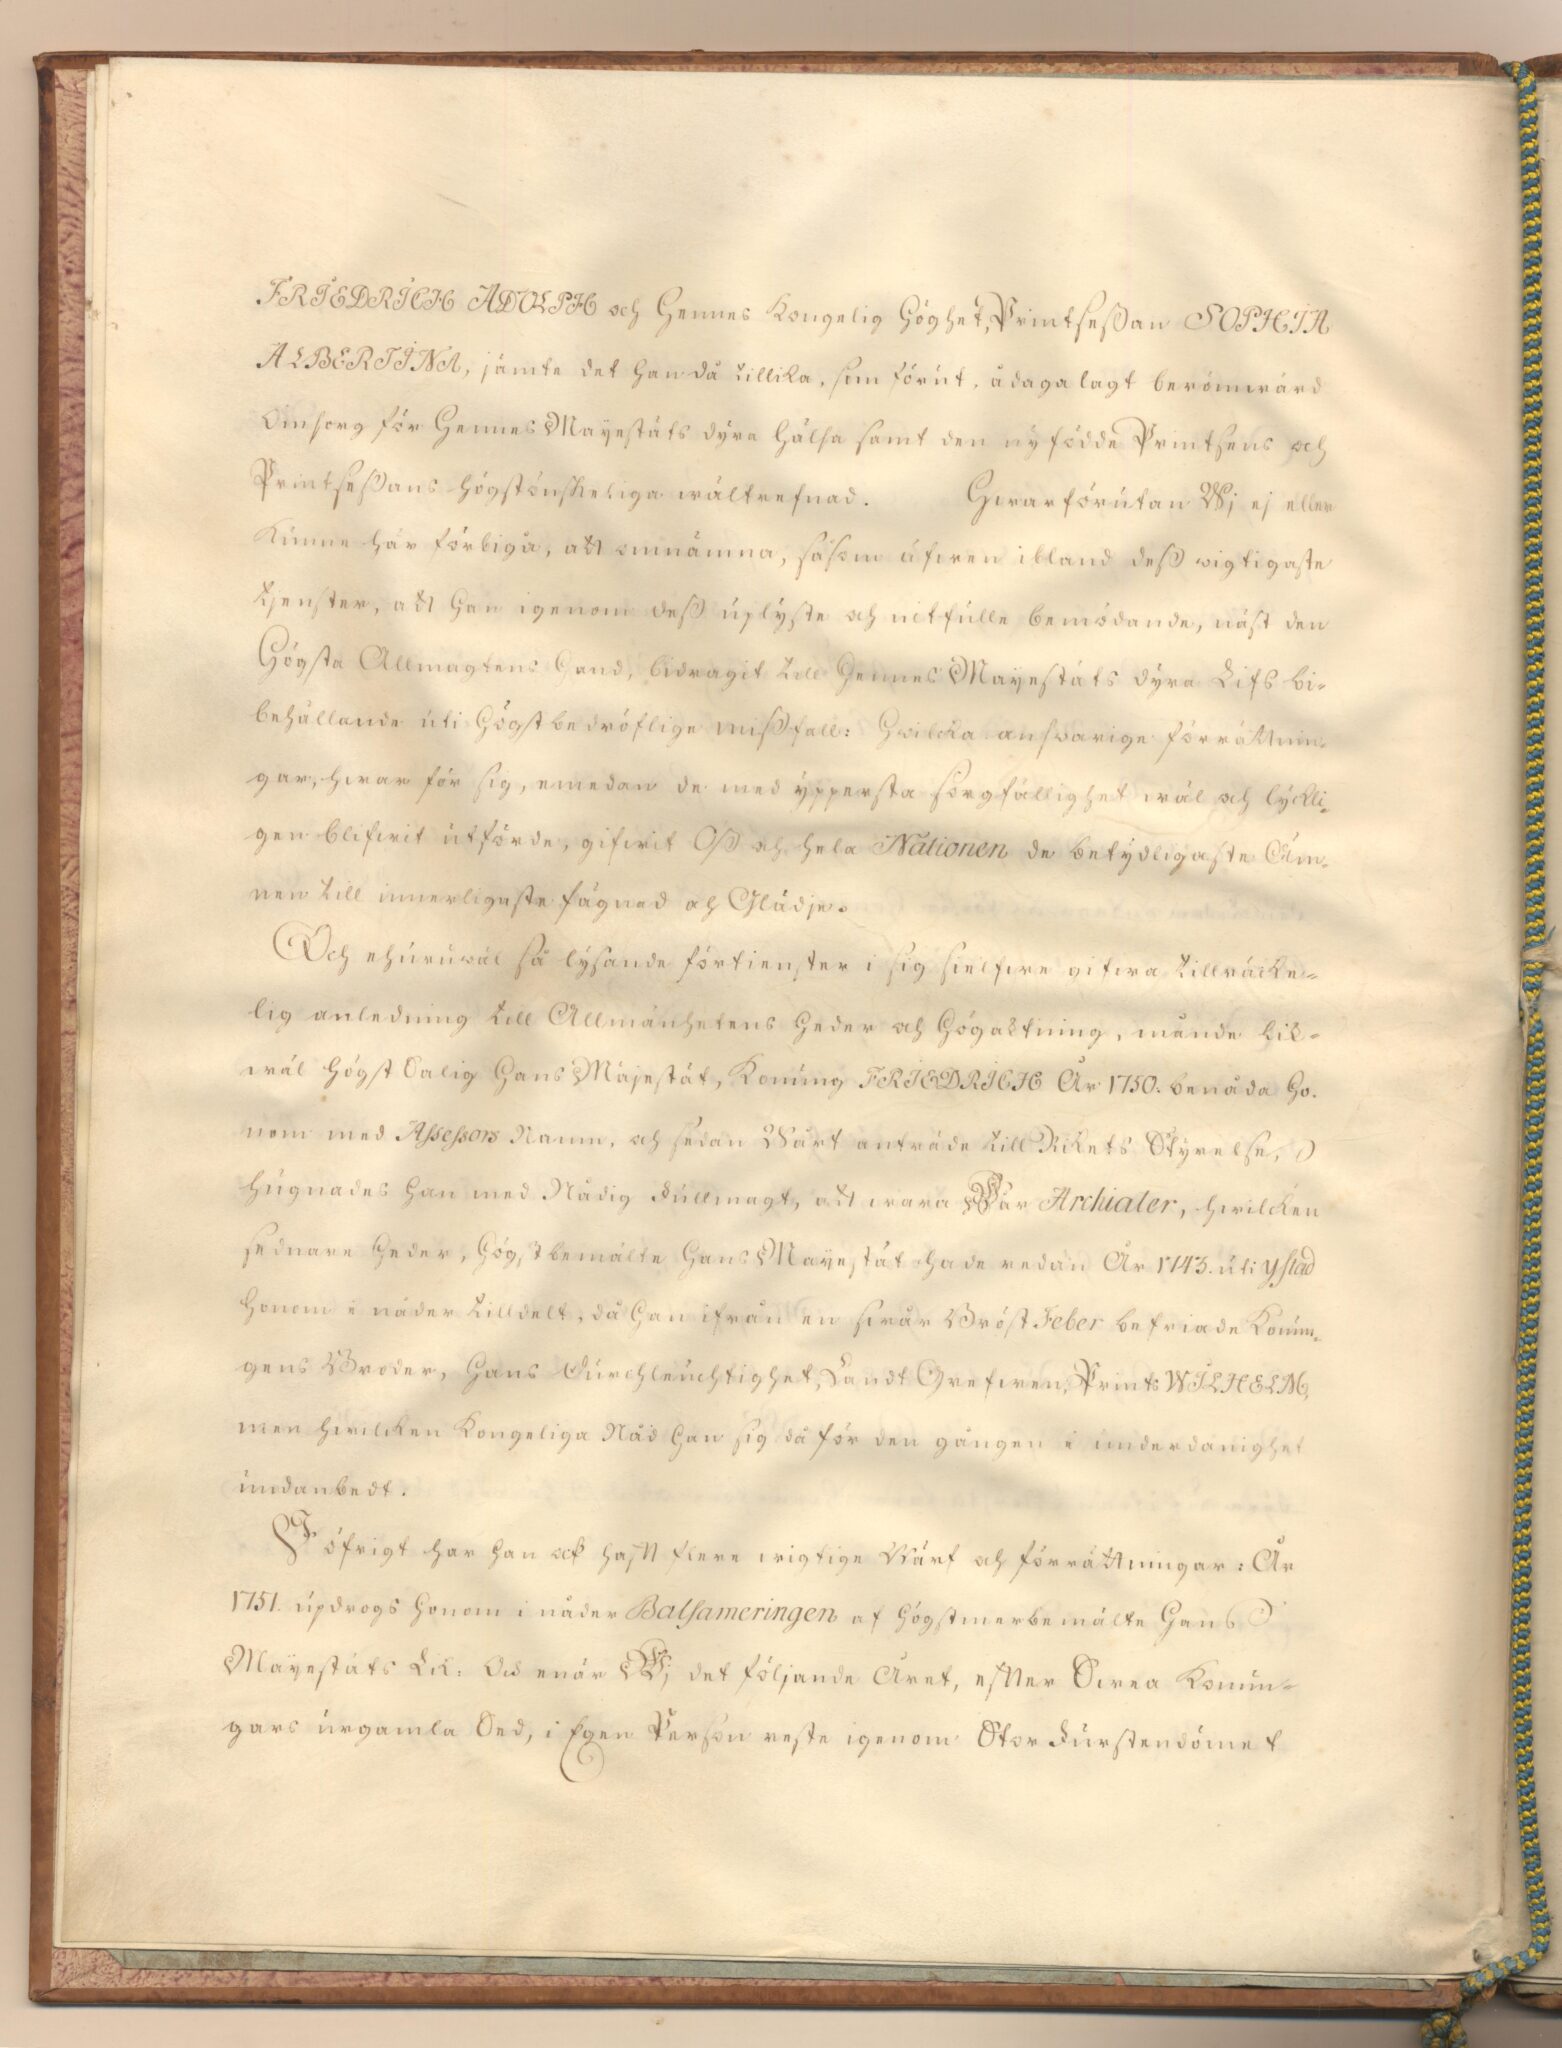 FRIEDRICH ADOLPH och Hennes Kongelig Höghet, Printseßan SOPHIA
ALBERTINA, jämte det Han då tillika, som förut, ådagalagt berömwärd
Omsorg för Hennes Mayestäts dyra Hälsa samt den nyfödde Printsens och
Printseßans högstönskeliga wältrefnad. Hwarförutan Wj ej eller
kunne här förbigå, att omnämna, såsom äfwen ibland deß wigtigaste
tjenster, att Han igenom deß uplyste och nitfulle bemödande, näst den
Högsta Allmagtens Hand, bidragit till Hennes Mayestäts dyra Lifs bi-
behållande uti Högstbedröflige mißfall: Hwilcka answarige förrättnin-
gar, hwar för sig, emedan de med yppersta sorgfällighet wäl och lyckli-
gen blifwit utförde, gifwit Oß och hela Nationen de betydligaste Äm-
nen till innerligaste fägnad och Glädje.
Och ehuruwäl så lysande förtienster i sig sielfwe gifwa tillräcke-
lig anledning till Allmänhetens Heder och Högaktning, månde lik-
wäl Högst Salig Hans Mäjestät, Konung FRIEDRICH År 1750. benåda Ho-
nom med Assessors Namn, och sedan Wårt anträde till Rikets Styrelse,
hugnades Han med Nådig Fullmagt, att wara Wår Archiater, hwilcken
sednare Heder, Högstbemälte Hans Mayestät hade redan År 1743. uti Ystad
Honom i nåder tilldelt, då Han ifrån en swår Bröst Feber befriade Konun-
gens Broder, Hans Durchleuchtighet, Landt Grefwen, Prints WILHELM,
men hwilcken Kongeliga Nåd Han sig då för den gången i underdånighet
undanbedt.
I öfrigt har Han ock haft flere wigtige Wärf och förrättningar: År
1751. updrogs Honom i nåder Balsameringen af Högstmerbemälte Hans
Mayestäts Lik: Och enär Wj det följande Året, efter Swea Konun-
gars urgamla Sed, i Egen Person reste igenom Stor Furstendömet